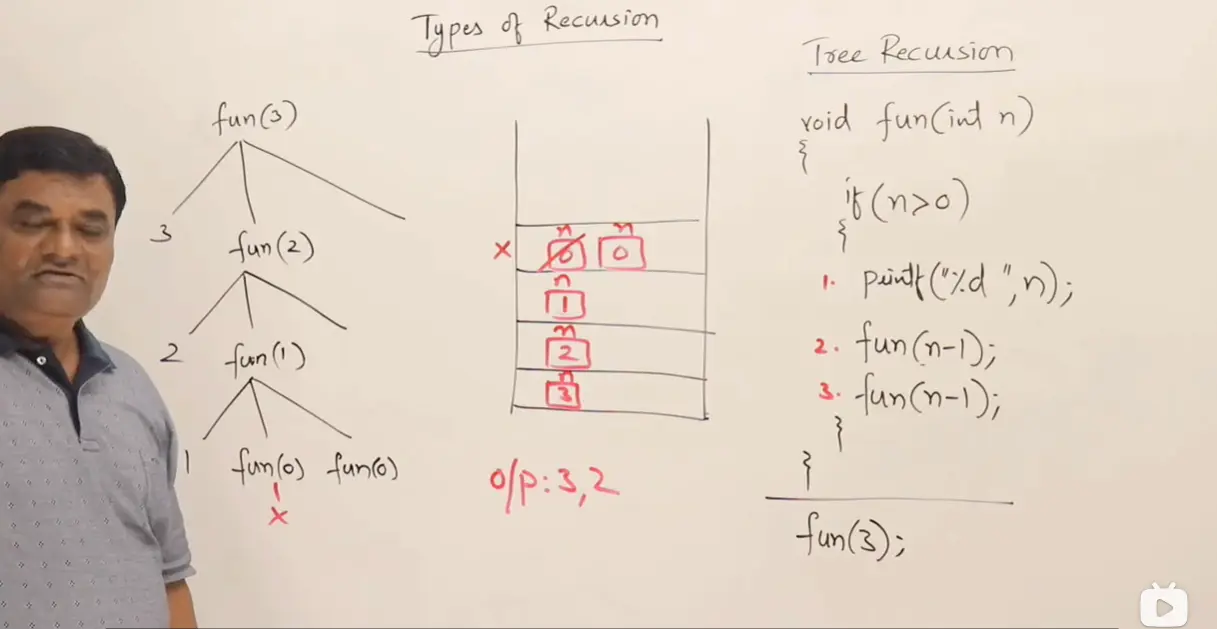 Types of Recursion
fun(3)
3
fun(2)
2
fun(1)
1 fun(0) fun(0)
x
n n
x 0 0
n
1
n
2
n
3
o/p: 3, 2
Tree Recursion
void fun(int n)
{
if (n>0)
{
1. printf("%d ", n);
2. fun(n-1);
3. fun(n-1);
}
}
fun(3);